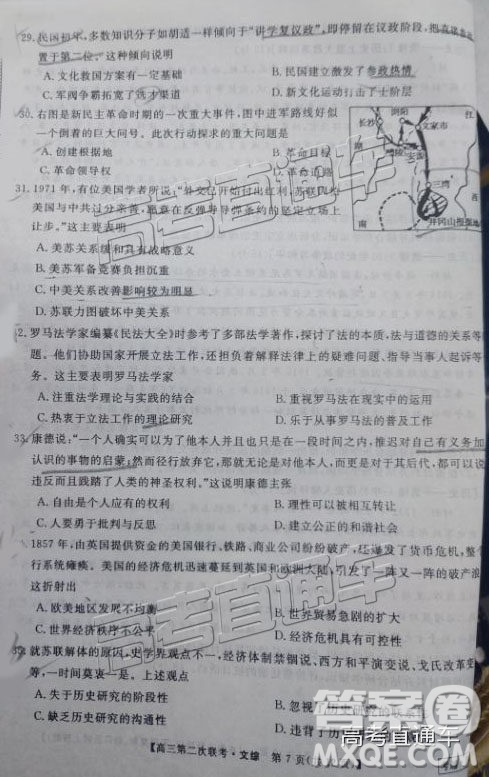 29. 民国初年,多数知识分子如胡适一样倾向于“讲学复议政”,即停留在议政阶段,把
置于第二位。这种倾向说明
A. 文化救国方案有一定基础 B. 民国建立激发了参政热情
C. 军阀争霸拓宽了选才渠道 D. 新文化运动打击了士阶层
30. 右图是新民主革命时期的一次重大事件,图中进军路线好似
一个倒着的巨大问号。此次行动探求的重大问题是
A. 创建根据地 B. 革命目标
C. 革命领导权 D. 革命道路
长沙 浏阳 江
文家市
湖 醴陵 安源 西
三湾
南 井冈山根据地
31. 1971年,有位美国学者所说:“外交已开始付出红利,苏联四处
美国与中共过分亲善,愿意在反弹导弹条约的坚定立场上
让步。”这主要表明
A. 美苏关系缓和具有战略意义
B. 美苏军备竞赛负担沉重
C. 中美关系改善影响较为明显
D. 苏联力图破坏中美关系
32. 罗马法学家编纂《民法大全》时参考了多部法学著作,探讨了法的本质,法与道德的关系等
题。他们协助国家开展立法工作,还担负着解释法律上的疑难问题、指导当事人起诉等
务。这主要表明罗马法学家
A. 注重法学理论与实践的结合 B. 重视罗马法的发展和完善
C. 热衷于立法工作的理论研究 D. 乐于从事罗马法的普及工作
33. 康德说:“一个人确实可以为了他本人并且也只是在一段时间之内,推迟对自己有义务加
认识的事物的启蒙;然而径行放弃它,那就无论是对他本人,而更是对于其后代,都可以说
违反而且践踏了人类的神圣权利。”这说明康德主张
A. 自由是个人应有的权利 B. 理性可以被相互转让
C. 人要勇于批判与反思 D. 建立公正的和谐社会
1857年,由英国提供资金的美国银行、铁路、商业公司纷纷破产,还爆发了货币危机,整个
行系统瘫痪。美国的经济危机迅速蔓延到英国和欧洲大陆,引发了一阵又一阵的破产浪
这折射出
A. 欧美地区发展不均衡 B. 世界贸易急剧的扩大
C. 世界经济秩序不公平 D. 世界经济具有可控性
35. 就苏联解体的原因,史学界观点不一,经济体制禁锢说、西方和平演变说、戈氏改革
等,一时间莫衷一是。上述观点
A. 失于历史研究的阶段性
C. 缺乏历史研究的沟通性
【高三第二次联考·文综 第7页
高考直通车
高考直通车
高考直通车
答案圈
MXQE.COM